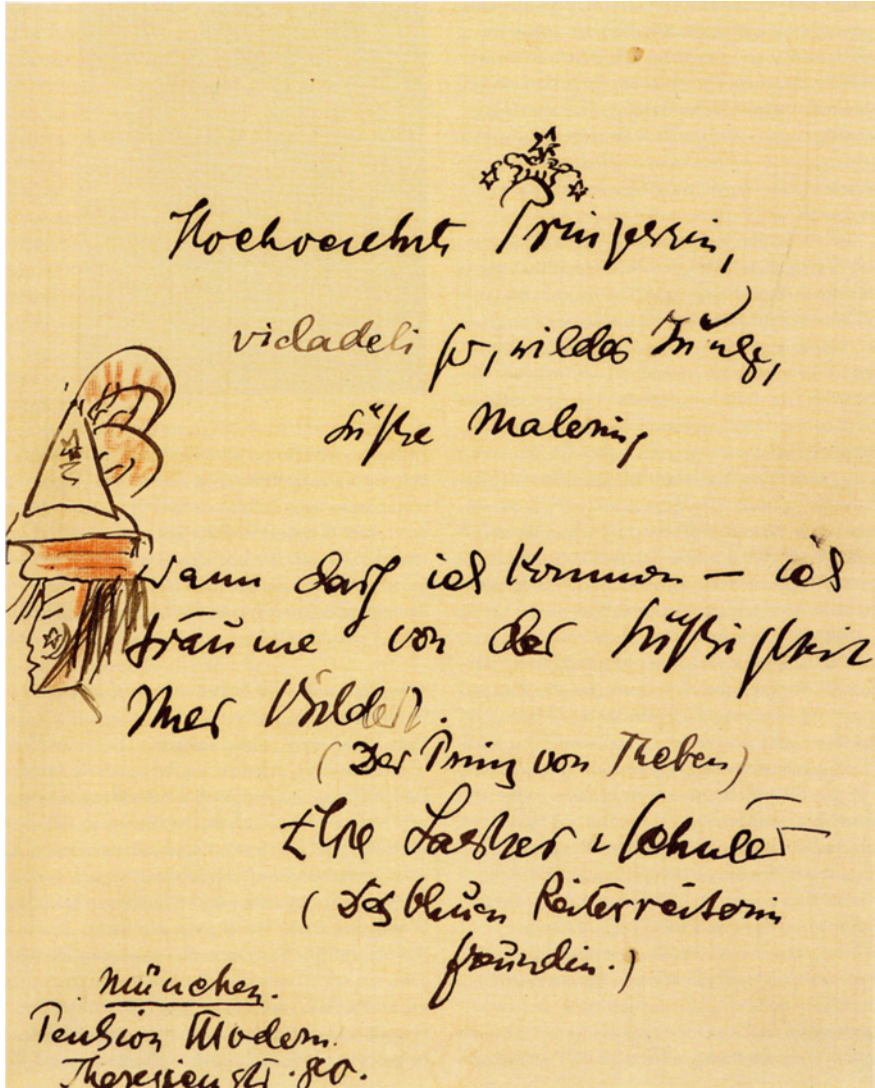 Hochverehrte Prinzessin,
vieladeliger, wilder Junge,
süße Malerin,
wann darf ich kommen – ich
träume von der Süßigkeit
Ihrer Bilder.
(Der Prinz von Theben)
Else Lasker-Schüler
(Des blauen Reiterreiterin
Freundin.)
München.
Pension Modern.
Theresienstr. 80.